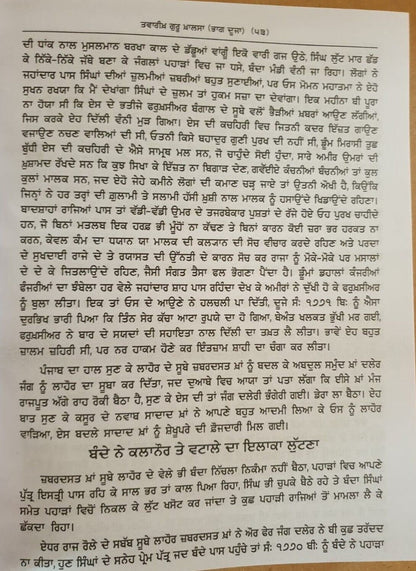 ਤਵਾਰੀਖ਼ ਗੁਰੂ ਖ਼ਾਲਸਾ (ਭਾਗ ਦੂਜਾ) (੫੩)
ਦੀ ਧਾਂਕ ਨਾਲ ਮੁਸਲਮਾਨ ਬਰਖਾ ਕਾਲ ਦੇ ਡੱਡੂਆਂ ਵਾਂਗੂੰ ਇਕੋ ਵਾਰੀ ਗਜ ਉਠੇ, ਸਿੰਘ ਲੁੱਟ ਮਾਰ ਛੱਡ
ਕੇ ਨਿੱਕੇ-ਨਿੱਕੇ ਜੱਥੇ ਬਣਾ ਕੇ ਜੰਗਲਾਂ ਪਹਾੜਾਂ ਵਿਚ ਜਾ ਧਸੇ, ਬੰਦਾ ਮੰਡੀ ਵੰਨੀ ਜਾ ਰਿਹਾ। ਲੋਗਾਂ ਨੇ
ਜਹਾਂਦਾਰ ਪਾਸ ਸਿੰਘਾਂ ਦੀਆਂ ਜ਼ੁਲਮੀਆਂ ਜ਼ਬਰੀਆਂ ਬਹੁਤ ਸੁਣਾਈਆਂ, ਪਰ ਓਸ ਮੋਮਨ ਮਹਾਤਮਾ ਨੇ ਏਹੋ
ਸੁਖਨ ਰਖਯਾ ਕਿ ਮੈਂ ਦੇਖਾਂਗਾ ਸਿੰਘਾਂ ਦੇ ਜ਼ੁਲਮ ਤਾਂ ਹੁਕਮ ਸਜ਼ਾ ਦਾ ਦੇਵਾਂਗਾ। ਇਕ ਮਹੀਨਾ ਬੀ ਪੂਰਾ
ਨਾ ਹੋਯਾ ਸੀ ਕਿ ਇਸ ਦੇ ਭਤੀਜੇ ਫਰੁਖ਼ਸੀਅਰ ਬੰਗਾਲ ਦੇ ਸੂਬੇ ਵਲੋਂ ਭੈੜੀਆਂ ਖ਼ਬਰਾਂ ਆਉਣ ਲੱਗੀਆਂ,
ਜਿਸ ਕਰਕੇ ਏਹ ਦਿੱਲੀ ਵੰਨੀ ਮੁੜ ਗਿਆ। ਇਸ ਦੀ ਕਚਹਿਰੀ ਵਿਚ ਜਿਤਨੀ ਕਦਰ ਇੱਜ਼ਤ ਗਾਉਣ
ਵਜਾਉਣ ਨਚਣ ਵਾਲਿਆਂ ਦੀ ਸੀ, ਓਤਨੀ ਕਿਸੇ ਬਹਾਦੁਰ ਗੁਣੀ ਪੁਰਖ ਦੀ ਨਹੀਂ ਸੀ, ਡੂੰਮ ਮਿਰਾਸੀ ਤੁਛ
ਬੁੱਧੀ ਇਸ ਦੀ ਕਚਹਿਰੀ ਦੇ ਐਸੇ ਸਾਮ੍ਰਥ ਮਲ ਸਨ, ਜੋ ਚਾਹੁੰਦੇ ਸੋਈ ਹੁੰਦਾ, ਸਾਰੇ ਅਮੀਰ ਉਮਰਾਂ ਦੀ
ਖ਼ੁਸ਼ਾਮਦ ਰੱਖਦੇ ਸਨ ਕਿ ਕੁਝ ਸਿਖਾ ਕੇ ਇੱਜ਼ਤ ਨਾ ਬਿਗਾੜ ਦੇਣ, ਗਵੱਈਏ ਕੰਚਨੀਆਂ ਬੰਚਨੀਆਂ ਤਾਂ ਕੁਲ
ਕੁਲਾਂ ਮਾਲਕ ਸਨ, ਜਦ ਏਹੋ ਜੇਹੇ ਕਮੀਨੇ ਲੋਗਾਂ ਦੀ ਕਮਾਣ ਚੜ੍ਹ ਜਾਏ ਤਾਂ ਉਤਨੀ ਔਖੀ ਹੈ, ਕਿਉਂਕਿ
ਜਿਨ੍ਹਾਂ ਨੇ ਹਰ ਤਰ੍ਹਾਂ ਦੀ ਗ਼ੁਲਾਮੀ ਤੇ ਸਲਾਮੀ ਹੱਸੀ ਖ਼ੁਸ਼ੀ ਨਾਲ ਮਾਲਕ ਨੂੰ ਹਸਾਉਂਦੇ ਖਿਡਾਉਂਦੇ ਰਹਿਣਾ।
ਬਾਦਸ਼ਾਹਾਂ ਰਾਜਿਆਂ ਪਾਸ ਤਾਂ ਵੱਡੀ-ਵੱਡੀ ਉਮਰ ਦੇ ਤਜਰਬੇਕਾਰ ਪੁਸ਼ਤਾਂ ਦੇ ਰੱਜੇ ਹੋਏ ਓਹ ਪੁਰਖ ਚਾਹੀਦੇ
ਹਨ, ਜੋ ਬਿਨਾਂ ਮਤਲਬ ਇਕ ਹਰਫ਼ ਭੀ ਮੂੰਹੋਂ ਨਾ ਕੱਢਣ ਤੇ ਬਿਨਾਂ ਕਾਰਨ ਕੋਈ ਜ਼ਰਾ ਭਰ ਹਰਕਤ ਨਾ
ਕਰਨ, ਕੇਵਲ ਕੰਮ ਦਾ ਧਯਾਨ ਯਾ ਮਾਲਕ ਦੀ ਕਲਯਾਨ ਦੀ ਸੋਚ ਵੀਚਾਰ ਕਰਦੇ ਰਹਿਣ ਅਤੇ ਪਰਜਾ
ਦੇ ਸੁਖਦਾਈ ਰਾਜੇ ਦੇ ਤੇ ਰਯਾਸਤ ਦੀ ਉੱਨਤੀ ਦੇ ਕਾਰਨ ਸੋਚ ਕਰ ਰਾਜਾ ਨੂੰ ਮੌਕੇ-ਮੌਕੇ ਪਰ ਮਸਾਲਾਂ
ਦੇ ਦੇ ਕੇ ਜਿਤਲਾਉਂਦੇ ਰਹਿਣ, ਜੈਸੀ ਸੰਗਤ ਤੈਸਾ ਫਲ ਭੋਗਣਾ ਪੈਂਦਾ ਹੈ। ਡੂੰਮਾਂ ਡਹਾਲਾਂ ਕੰਜਰੀਆਂ
ਫੰਜਰੀਆਂ ਦਾ ਝੰਬੇਲਾ ਹਰ ਵੇਲੇ ਜਹਾਂਦਾਰ ਸ਼ਾਹ ਪਾਸ ਰਹਿੰਦਾ ਦੇਖ ਕੇ ਅਮੀਰਾਂ ਨੇ ਦੁੱਖੀ ਹੋ ਕੇ ਫਰੁਖ਼ਸੀਅਰ
ਨੂੰ ਬੁਲਾ ਲੀਤਾ। ਇਕ ਤਾਂ ਓਸ ਦੇ ਆਉਣੇ ਨੇ ਹਲਚਲੀ ਪਾ ਦਿੱਤੀ, ਦੂਜੇ ਸੰ: ੧੭੭੧ ਬਿ: ਨੂੰ ਐਸਾ
ਦੁਰਭਿਖ ਭਾਰੀ ਪਿਆ ਕਿ ਤਿੰਨ ਸੇਰ ਕੱਚਾ ਆਟਾ ਰੁਪਯੇ ਦਾ ਹੋ ਗਿਆ, ਬੇਅੰਤ ਖ਼ਲਕਤ ਭੁੱਖੀ ਮਰ ਗਈ,
ਫਰੁਖ਼ਸੀਅਰ ਨੇ ਬਾਰ ਦੇ ਸਯਦਾਂ ਦੀ ਸਹਾਇਤਾ ਨਾਲ ਦਿੱਲੀ ਦਾ ਤਖ਼ਤ ਲੈ ਲੀਤਾ। ਭਾਵੇਂ ਏਹ ਬਹੁਤ
ਜ਼ਾਲਮ ਜ਼ਹਿਰੀ ਸੀ, ਪਰ ਨਰ ਹਾਕਮ ਹੋਣੇ ਕਰ ਇੰਤਜ਼ਾਮ ਸ਼ਾਹੀ ਦਾ ਚੰਗਾ ਕਰ ਲੀਤਾ।
ਪੰਜਾਬ ਦਾ ਹਾਲ ਸੁਣ ਕੇ ਲਾਹੌਰ ਦੇ ਸੂਬੇ ਜ਼ਬਰਦਸਤ ਖ਼ਾਂ ਨੂੰ ਬਦਲ ਕੇ ਅਬਦੁਲ ਸਮੁੰਦ ਖ਼ਾਂ ਦਲੇਰ
ਜੰਗ ਨੂੰ ਲਾਹੌਰ ਦਾ ਸੂਬਾ ਕਰ ਦਿੱਤਾ, ਜਦ ਦੁਆਬੇ ਵਿਚ ਆਯਾ ਤਾਂ ਪਤਾ ਲੱਗਾ ਕਿ ਈਸੇ ਖ਼ਾਂ ਮੰਜ
ਰਾਜਪੂਤ ਅੱਗੇ ਰਾਹ ਰੋਕੀ ਬੈਠਾ ਹੈ, ਸੁਣ ਕੇ ਏਸ ਦੀ ਤਾਂ ਜੰਗ ਦਲੇਰੀ ਭੰਗੇਰੀ ਗਈ। ਡੇਰਾ ਲਾ ਬੈਠਾ। ਏਹ
ਬਾਤ ਸੁਣ ਕੇ ਕਸੂਰ ਦੇ ਨਵਾਬ ਸਾਦਾਦ ਖ਼ਾਂ ਨੇ ਆਪਣੇ ਬਹੁਤ ਆਦਮੀ ਲਿਆ ਕੇ ਓਸ ਨੂੰ ਲਾਹੌਰ
ਵਾੜਿਆ, ਇਸ ਬਦਲੇ ਸਾਦਾਦ ਖ਼ਾਂ ਨੂੰ ਸ਼ੇਖ਼ੂਪਰੇ ਦੀ ਫ਼ੌਜਦਾਰੀ ਮਿਲ ਗਈ।
ਬੰਦੇ ਨੇ ਕਲਾਨੌਰ ਤੇ ਵਟਾਲੇ ਦਾ ਇਲਾਕਾ ਲੁੱਟਣਾ
ਜ਼ਬਰਦਸਤ ਖ਼ਾਂ ਸੂਬੇ ਲਾਹੌਰ ਦੇ ਵੇਲੇ ਭੀ ਬੰਦਾ ਨਿੱਚਲਾ ਨਿਕੰਮਾ ਨਹੀਂ ਬੈਠਾ, ਪਹਾੜਾਂ ਵਿਚ ਆਪਣੇ
ਪੁੱਤ੍ਰ ਇਸਤ੍ਰੀ ਪਾਸ ਰਹਿ ਕੇ ਸਾਲ ਭਰ ਤਾਂ ਕਾਲ ਪਿਆ ਰਿਹਾ, ਸਿੰਘ ਭੀ ਚੁਪਕੇ ਬੈਠੇ ਰਹੇ ਤੇ ਬੰਦਾ ਸਿੰਘਾਂ
ਸਮੇਤ ਪਹਾੜਾਂ ਵਿਚੋਂ ਨਿਕਲ ਕੇ ਲੁੱਟ ਖਸੋਟ ਕਰ ਜਾਂਦਾ ਤੇ ਕੁਛ ਪਹਾੜੀ ਰਾਜਿਆਂ ਤੋਂ ਮਾਮਲਾ ਲੈ ਕੇ
ਛੱਕਦਾ ਰਿਹਾ।
ਏਧਰ ਰਾਜ ਰੌਲੇ ਦੇ ਸਬੱਬ ਸੂਬੇ ਲਾਹੌਰ ਜ਼ਬਰਦਸਤ ਖ਼ਾਂ ਨੇ ਔਰ ਫੇਰ ਜੰਗ ਦਲੇਰ ਨੇ ਬੀ ਕੁਛ ਤਰੱਦਦ
ਨਾ ਕੀਤਾ, ਹੁਣ ਸਿੰਘਾਂ ਦੇ ਸਨੇਹ ਪ੍ਰੇਮ ਪੱਤ੍ਰ ਜਦ ਬੰਦੇ ਪਾਸ ਪਹੁੰਚੇ ਤਾਂ ਸੰ: ੧੭੭੦ ਬਿ: ਨੂੰ ਬੰਦੇ ਨੇ ਪਹਾੜਾਂ